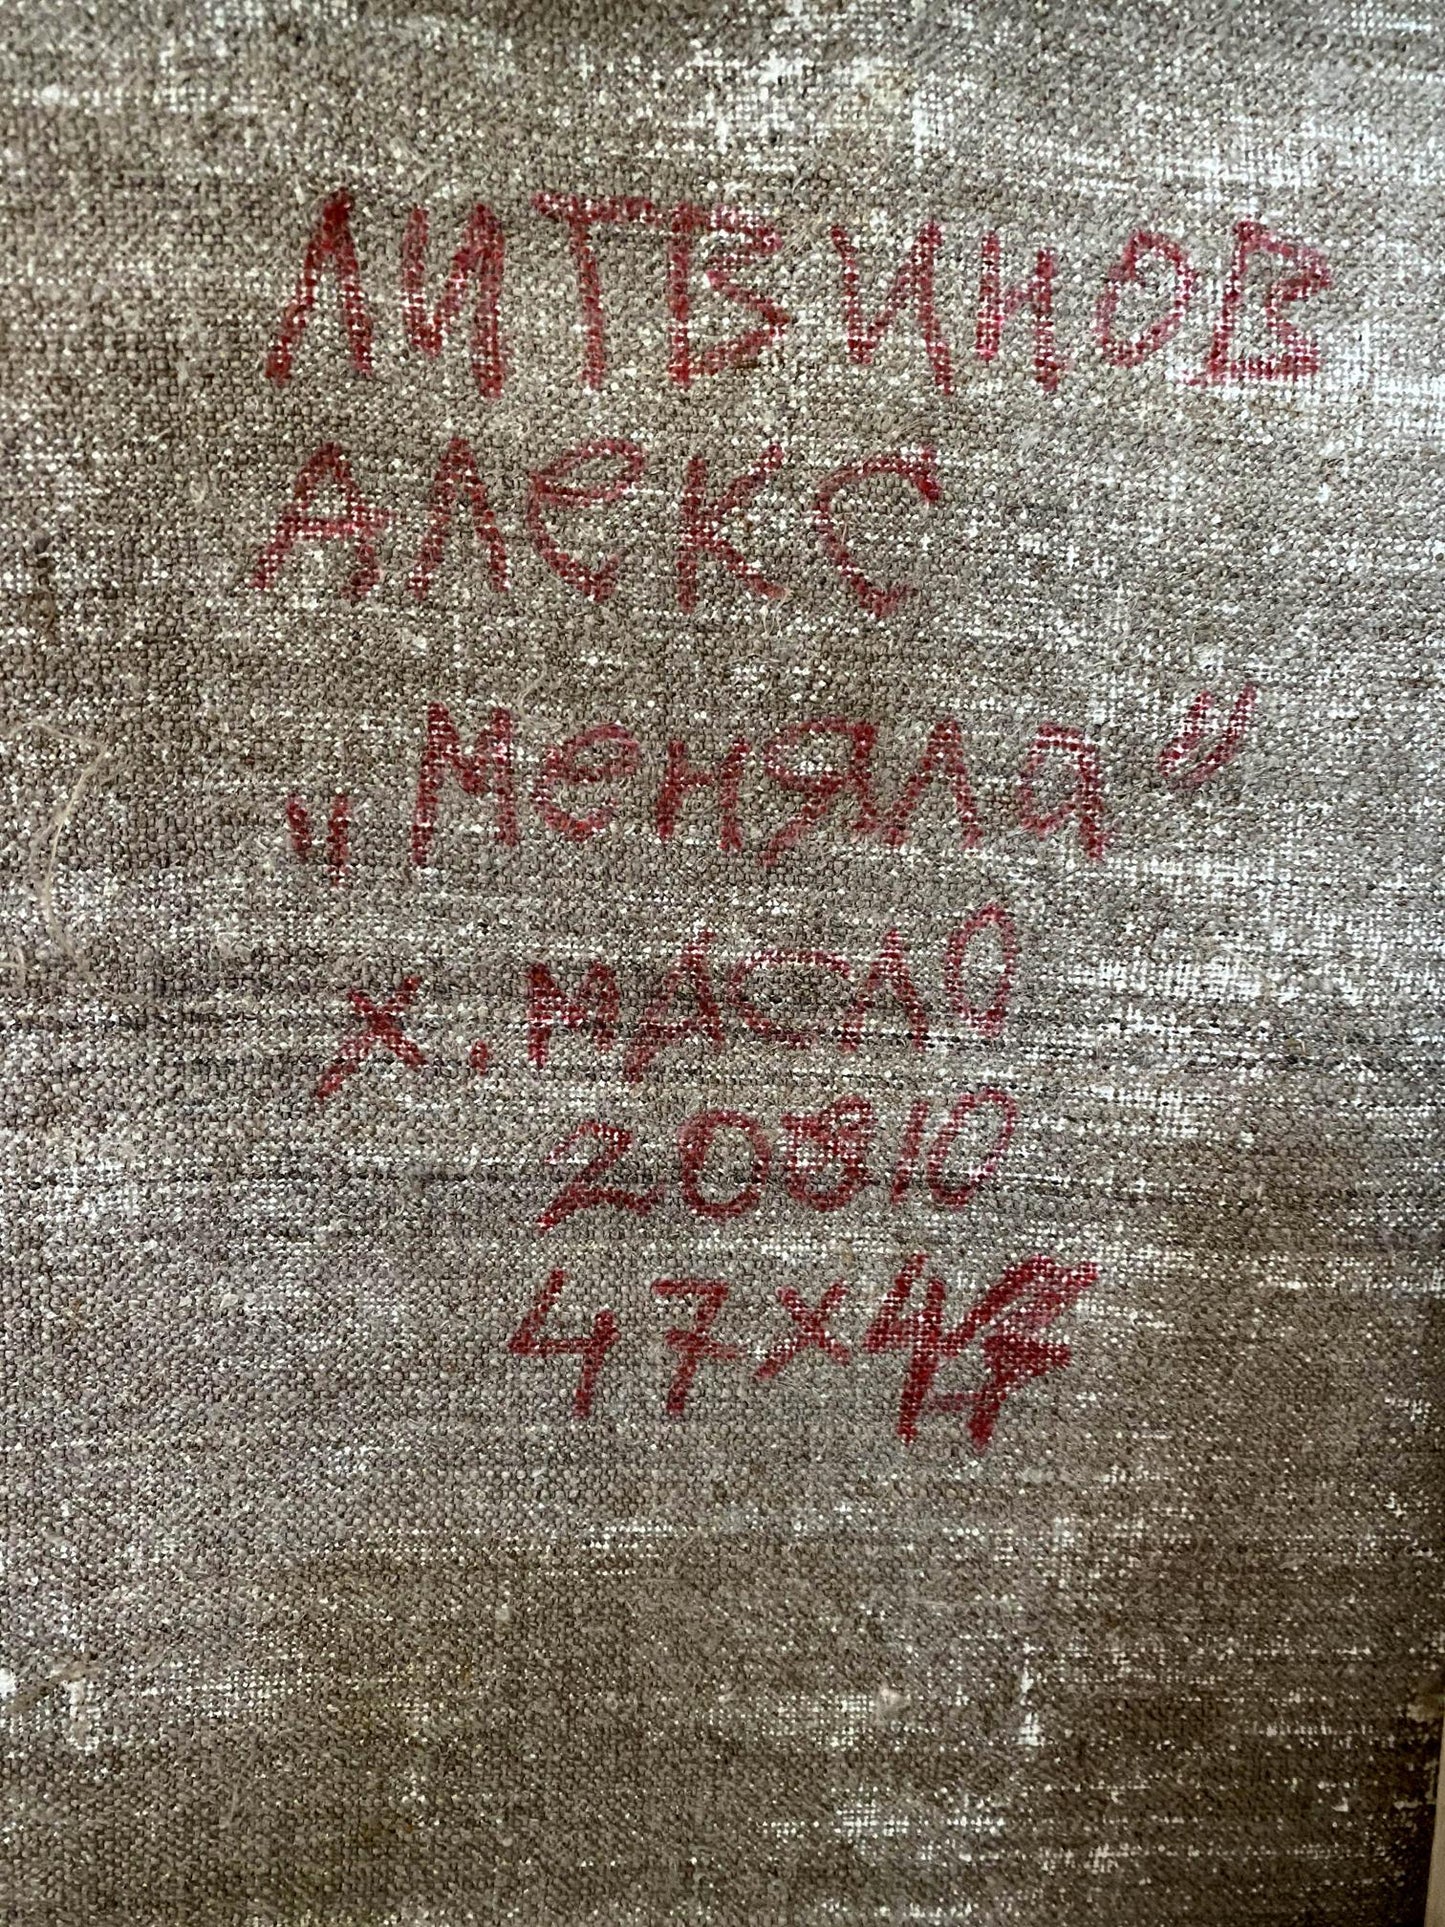 ЛИТВИНОВ
АЛЕКС
„Меняла”
х. МАСЛО
47х